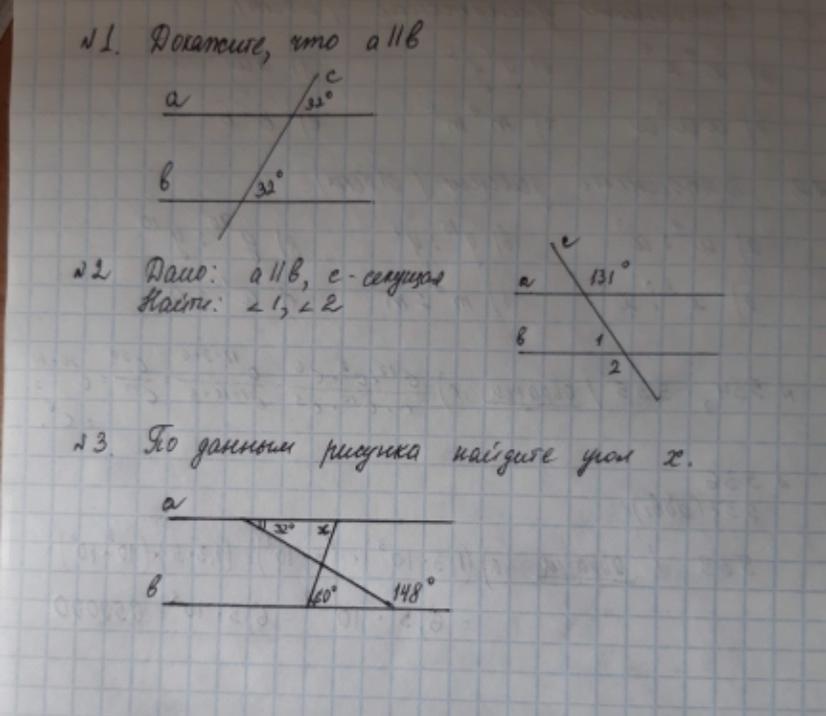 №1. Докажите, что a∥b
c
a
32°
b
32°
№2 Дано: a∥b, c - секущая
Найти: ∠1, ∠2
c
a
131°
b
1
2
№3. По данным рисунка найдите угол x.
a
32°
x
b
60°
148°